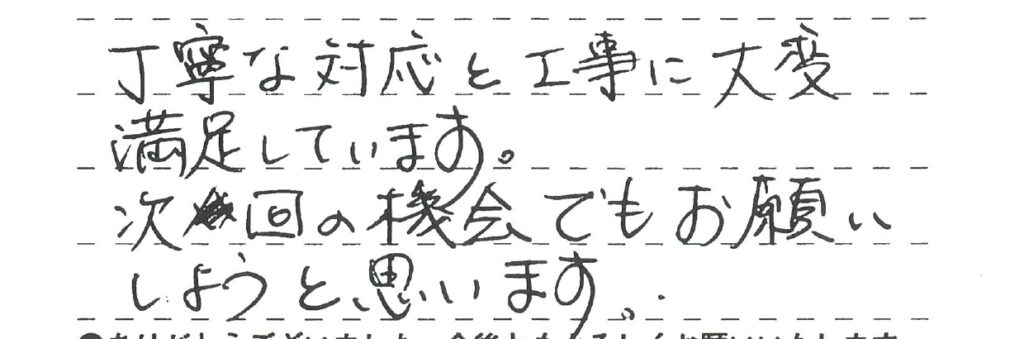 丁寧な対応と工事に大変
満足しています。
次回の機会でもお願い
しようと思います。